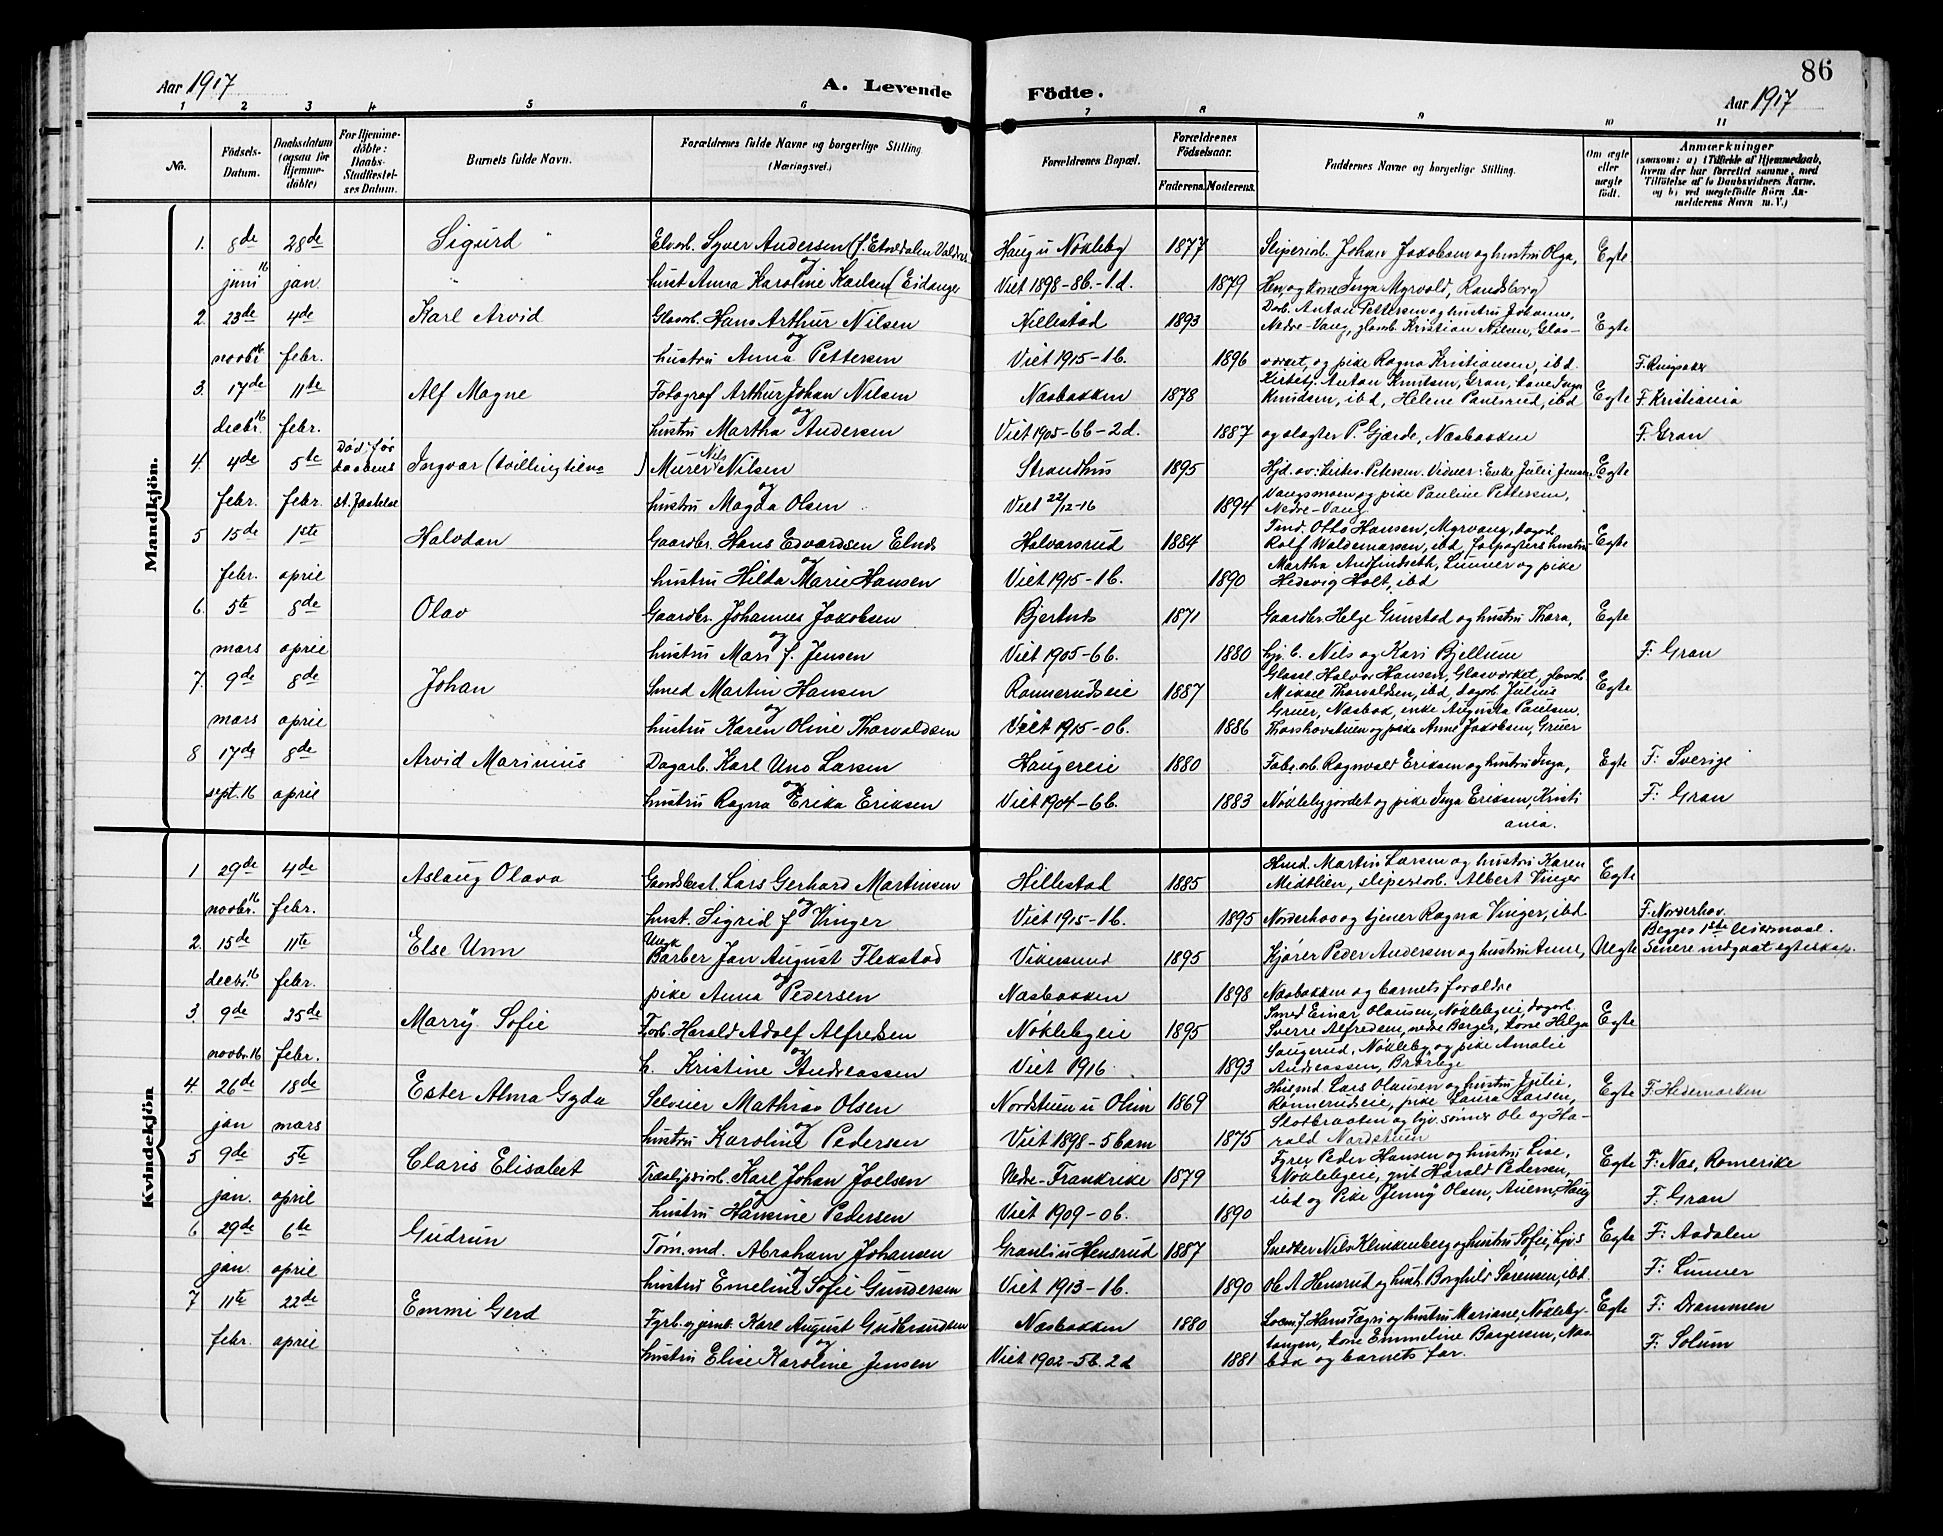 86
Aar 1917 A. Levende Födte. Aar 1917
1 2 3 4 5 6 7 8 9 10 11
No. Födsels-Datum. Daabsdatum (ogsaa for Hjemmedöbte) For Hjemmedöbte: Daabs-Stadfæstelses Datum. Barnets fulde Navn. Forældrenes fulde Navne og borgerlige Stilling (Næringsvei.) Forældrenes Bopæl. Forældrenes Födselsaar. Faderens. Moderens. Faddernes Navne og borgerlige Stilling. Om ægte eller uægte födt. Anmærkninger (saasom: a) i Tilfælde af Hjemmedaab, hvem der har forrettet samme, med Tilföielse af to Daabsvidners Navne, og b) ved uægtefödte Börn Anmelderens Navn m. V.)
Mandkjön.
1. 8de 28de Sigurd Elv.arb. Syver Andersen (f. Etnedalen Valdres) Haug u Nökleby 1877 Sliperiarb. Johan Jakobsen og hustru Olga, Egte
juni 16 jan. og hust Anna Karoline Karlsen (Eidanger Viet 1898-8b.-1d. 1879 Hen, og kone Inga Myrvold, Randsborg
2. 23de 4de Karl Arvid Glasarb. Hans Arthur Nilsen Hillestad 1893 Darb. Anton Pettersen og hustru Johanne, Nedre-Vang, glasarb Kristian Nilsen, Glas- Egte
novbr. 16 febr. og hustru Anna Pettersen Viet 1915-1b. 1896 værket, og pike Ragna Kristiansen, ibd. F. Ringsaker
3. 17de 11te Alf Magne Fotograf Arthur Johan Nilsen Næsbakken 1878 Kirketj. Anton Knudsen, Gran, kone Inga Knudsen, ibd, Helene Paulsrud, ibd Egte F. Kristiania
decbr. 16 febr. og hustru Martha Andersen Viet 1905-6b-2d. 1887 og slagter P. Gjærde, Næsbakken F. Gran
4. 4de 5te Död før daabens Ingvar (tvillingtiene) Murer Nils Nilsen Strandhus 1895 Hjd. av: Kirkes. Petersen. Vidner: Enke Julie Jensen, Egte
febr. febr. st. fæstelse og hustru Magda Olsen Viet 22/12-16 1894 Vangsmoen og pike Pauline Pettersen, Nedre-Vang
5 15de 1ste Halvdan Gaardbr. Hans Edvardsen Elnæs Halvorsrud 1884 Tmd. Otto Hansen, Myrvang, dagarb. Rolf Waldemarsen, ibd, forpagters hustru Egte
febr. april og hustru Hilda Marie Hansen Viet 1915-1b. 1890 Martha Andfindseth, Lunner og pike Hedevig Holt, ibd
6. 5te 8de Olav Gaardbr. Johannes Jakobsen Bjertnæs 1871 Gaardbr Helge Grinstad og hustru Thora, Egte
mars april og hustru Mari f. Jensen Viet 1905-6b. 1880 hj. b. Nils og Kari Bjellum F: Gran
7. 9de 8de Johan Smed Martin Hansen Rønnerudseie 1887 Glassl. Halvor Hansen, Glasværket, glasarb Mikael Thorvaldsen, ibd, dagarb. Julius Egte
mars april og hustru Karen Oline Thorvaldsen Viet 1915-0b. 1886 Gruer, Næsbak, enke Augusta Paulsen, Thorshovstuen og pike Anne Jakobsen, Gruer
8 17de 8de Arvid Marinius Dagarb. Karl Uno Larsen Haugereie 1880 Fabr.arb. Ragnvald Eriksen og hustru Inga, Egte F: Sverige
sept. 16 april og hustru Ragna Erika Eriksen Viet 1904-6b. 1883 Nöklebyjordet og pike Inga Eriksen, Kristi ania. F: Gran
Kvindekjön
1 29de 4de Aslaug Olava Gaardsbest. Lars Gerhard Martinsen Hillestad 1885 Hmd. Martin Larsen og hustru Karen Midtlien, sliperiarb. Albert Vinger Egte
novbr. 16 febr. og hust. Sigrid f Vinger Viet 1915-1b. 1895 Norderhov og tjener Ragna Vinger, ibd F. Norderhov.
2. 15de 11te Else Unn Ungk Barber Jan August Flekstad Vikersund 1895 Kjører Peder Andersen og hustru Anne, Uegte Begges 1ste leiermaal. Senere indgaat egteskap.
decbr. 16 febr. og pike Anna Pedersen Næsbakken 1898 Næsbakken og barnets foreldre
3. 9de 25de Marry Sofie Farb. Harald Adolf Alfredsen Nöklebyeie 1895 Smed Einar Olausen, Nöklebyeie, dagarb. Sverre Alfredsen, nedre Berger, kone Helga Egte
novbr. 16 febr. og h. Kristine Andreassen Viet 1916. 1893 Saugerud, Nökleby og pike Amalie Andreassen, Brörbye
4. 26de 18de Ester Alma Gyda Selveier Mathias Olsen Nordstuen u Olim 1869 Husmd Lars Olausen og hustru Julie, Rönnerudseie, pike Laura Larsen, Egte F: Hedemarken
jan mars og hustru Karoline Pedersen Viet 1898-5 barn 1875 Slotbraaten og hjv. sønner Ole og Harald Nordstuen
5 9de 5te Claris Elisabet Træsliperiarb. Karl Johan Joelsen Nedre-Frankrike 1879 Fyrer Peder Hansen og hustru Lise, Nöklebyeie, gut Harald Pedersen, Egte F: Næs, Romerike
jan. april og hustru Hansine Pedersen Viet 1909-0b. 1890 ibd og Pike Jenny Olsen, Auern, Haug F: Gran
6 29de 6te Gudrun Tøm.md. Abraham Johansen Granli u Hensrud 1887 Snedker Nils Klinkenberg og hustru Sofie, Lyvs Egte F: Aadalen
jan. april og hustru Emeline Sofie Gundersen Viet 1913-1b. 1890 Ole A Hensrud og hust. Borghild Sørensen, ibd. F: Lunner
7 11te 22de Emmi Gerd Fyrb. og jernb. Karl August Gudbrandsen Næsbakken 1880 Hans Fagri og hustru Mariane, Nökleby- Egte F: Drammen
febr. april og hustru Elise Karoline Jensen Viet 1902-5b. 2d 1881 tangen, kone Emmeline Borgersen, Næsbak og barnets far. F: Solum